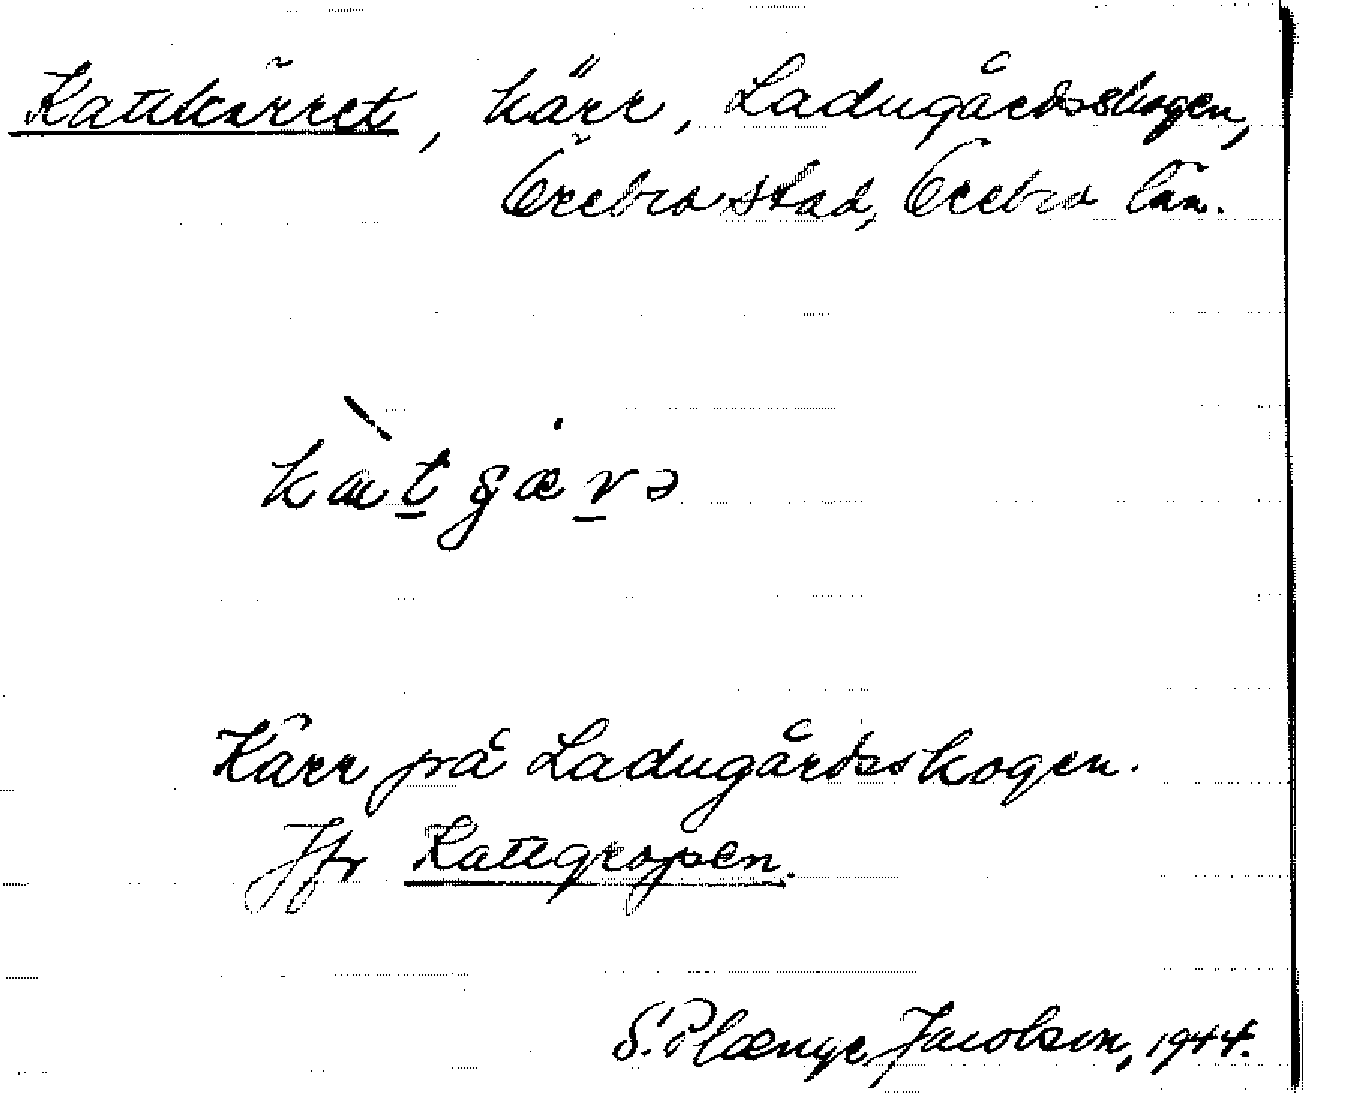 Kattkärret, kärr, Ladugårdsskogen,
Örebro stad, Örebro län.
Kärr på Ladugårdsskogen.
Jfr Kattgropen.
S. Plænge Jacobson, 1944.